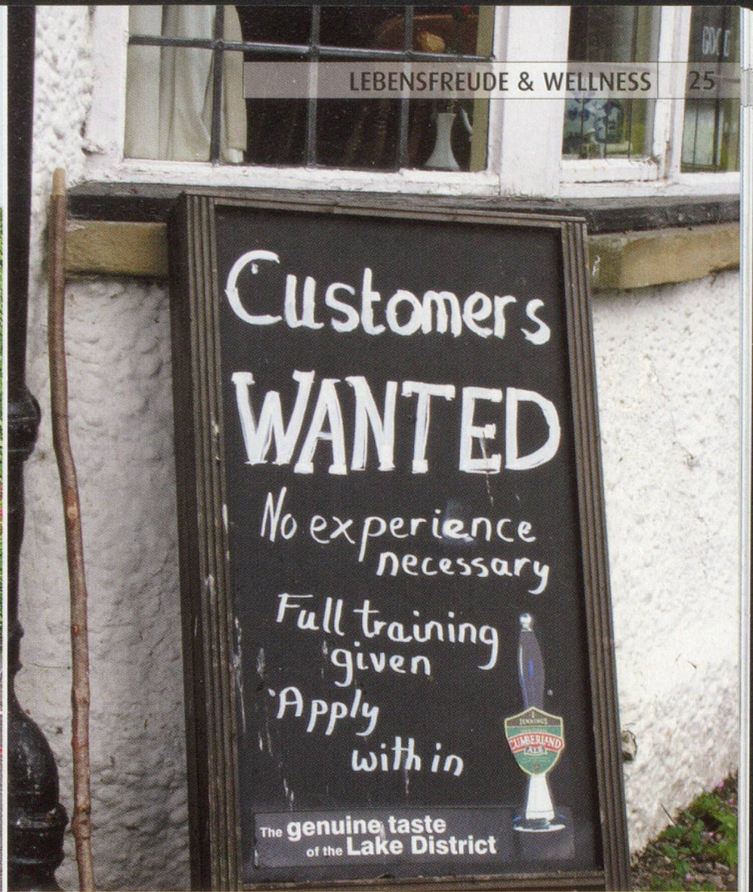 LEBENSFREUDE & WELLNESS 25
Customers
WANTED
No experience
necessary
Full training
given
Apply
with in
JENNINGS
CUMBERLAND
ALE
The genuine taste
of the Lake District